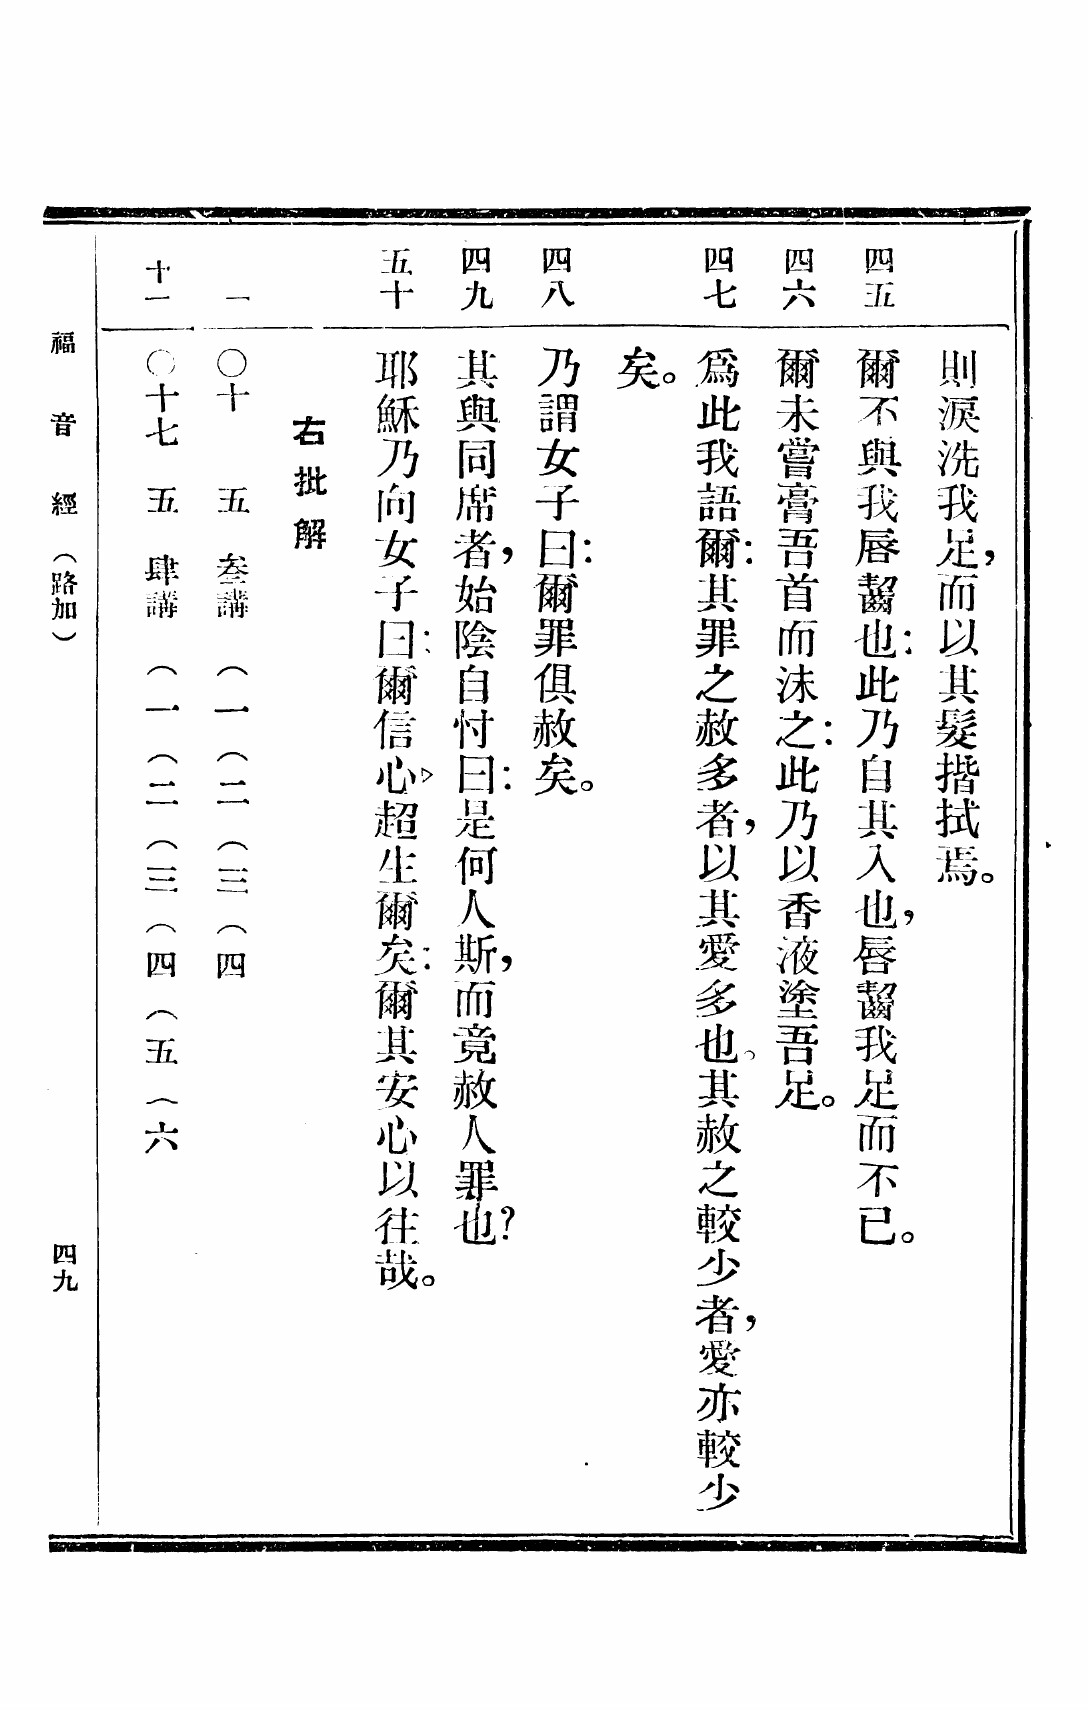 則淚洗我足，而以其髮揩拭焉。
四五 爾不與我唇齧也：此乃自其入也，唇齧我足而不已。
四六 爾未嘗膏吾首而沬之：此乃以香液塗吾足。
四七 爲此我語爾：其罪之赦多者，以其愛多也。其赦之較少者，愛亦較少
矣。
四八 乃謂女子曰：爾罪俱赦矣。
四九 其與同席者，始陰自忖曰：是何人斯，而竟赦人罪也？
五十 耶穌乃向女子曰：爾信心，超生爾矣：爾其安心以往哉。
右批解
一 〇十 五 叁講 （一（二（三（四
十一 〇十七 五 肆講 （一（二（三（四（五（六
福音經（路加） 四九